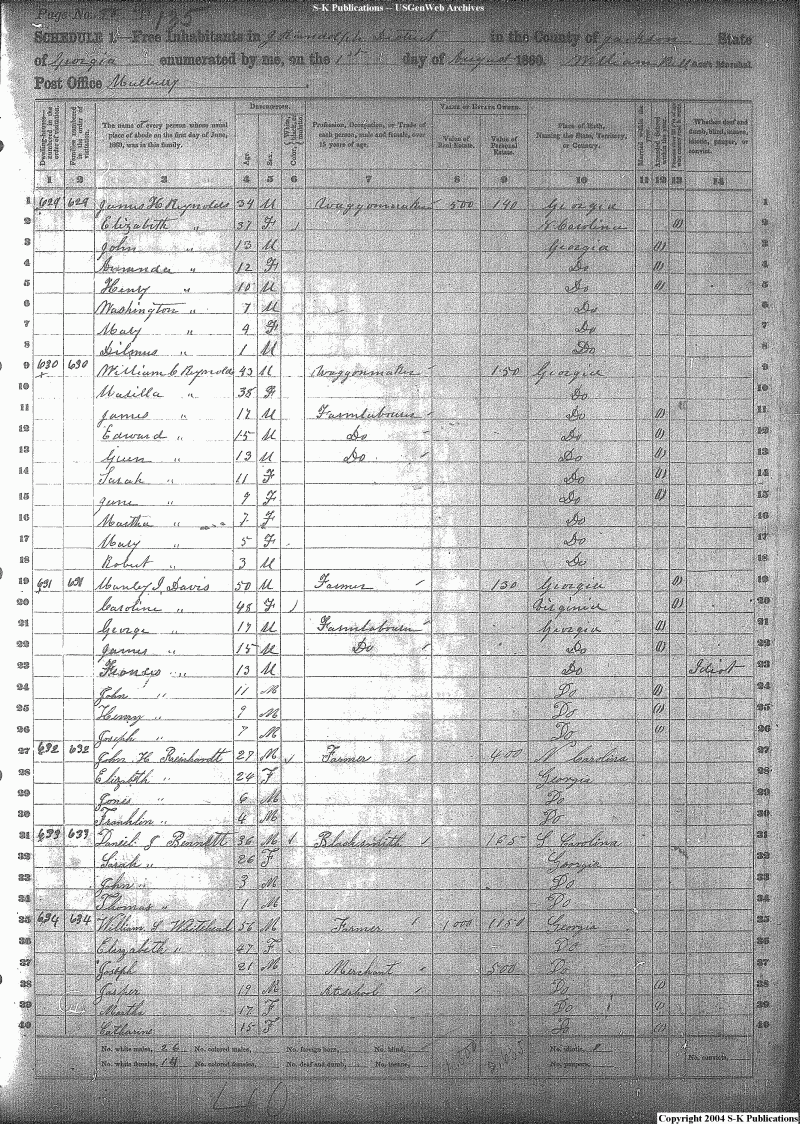 S-K Publications -- USGenWeb Archives
Page No. 135
SCHEDULE 1.—Free Inhabitants in J Randolph District in the County of Jackson State
of Georgia enumerated by me, on the 1st day of August 1860. William Bell Ass't Marshal
Post Office Mulbery
DESCRIPTION. VALUE OF ESTATE OWNED.
Dwelling-houses—numbered in the order of visitation. Families numbered in the order of visitation. The name of every person whose usual place of abode on the first day of June, 1860, was in this family. Age. Sex. Profession, Occupation, or Trade of each person, male and female, over 15 years of age. Value of Real Estate. Value of Personal Estate. Place of Birth, Naming the State, Territory, or Country. Married within the year. Whether deaf and dumb, blind, insane, idiotic, pauper, or convict.
1 2 3 4 5 6 7 8 9 10 11 12 13 14
1 629 629 James H Reynolds 34 M Waggonmaker 500 140 Georgia 1
2 Elizabeth " 37 F N Carolina 2
3 John " 13 M Georgia 3
4 " 12 F Do 4
5 Henry " 10 M Do 5
6 Washington " 7 M Do 6
7 Mary " 4 F Do 7
8 Dilmus " 1 M Do 8
9 630 630 William C Reynolds 43 M Waggonmaker 150 Georgia 9
10 " 38 F Do 10
11 James " 17 M Farmlabourer Do 11
12 Edward " 15 M Do Do 12
13 Green " 13 M Do Do 13
14 Sarah " 11 F Do 14
15 Jane " 9 F Do 15
16 Martha " 7 F Do 16
17 Mary " 5 F Do 17
18 Robert " 3 M Do 18
19 631 631 Manley J Davis 50 M Farmer 130 Georgia 19
20 Caroline " 48 F Virginia 20
21 George " 17 M Farmlabourer Georgia 21
22 James " 15 M Do Do 22
23 Francis " 13 M Do Idiot 23
24 John " 11 M Do 24
25 Henry " 9 M Do 25
26 Joseph " 7 M Do 26
27 632 632 John H Reinhardt 27 M Farmer 400 N Carolina 27
28 Elizabeth " 24 F Georgia 28
29 Jones " 6 M Do 29
30 Franklin " 4 M Do 30
31 633 633 Daniel J Bennett 36 M Blacksmith 165 S Carolina 31
32 Sarah " 26 F Georgia 32
33 John " 3 M Do 33
34 Thomas " 1 M Do 34
35 634 634 William S Whitehead 56 M Farmer 1000 1150 Georgia 35
36 Elizabeth " 47 F Do 36
37 Joseph 21 M Merchant 500 Do 37
38 Jasper 19 M At school Do 38
39 Martha 17 F Do 39
40 Catharine 15 F Do 40
No. white males, 26 No. colored males, No. foreign born, No. blind, No. idiotic,
No. white females, 14 No. colored females, No. deaf and dumb, No. insane, No. paupers, No. convicts,
Copyright 2004 S-K Publications